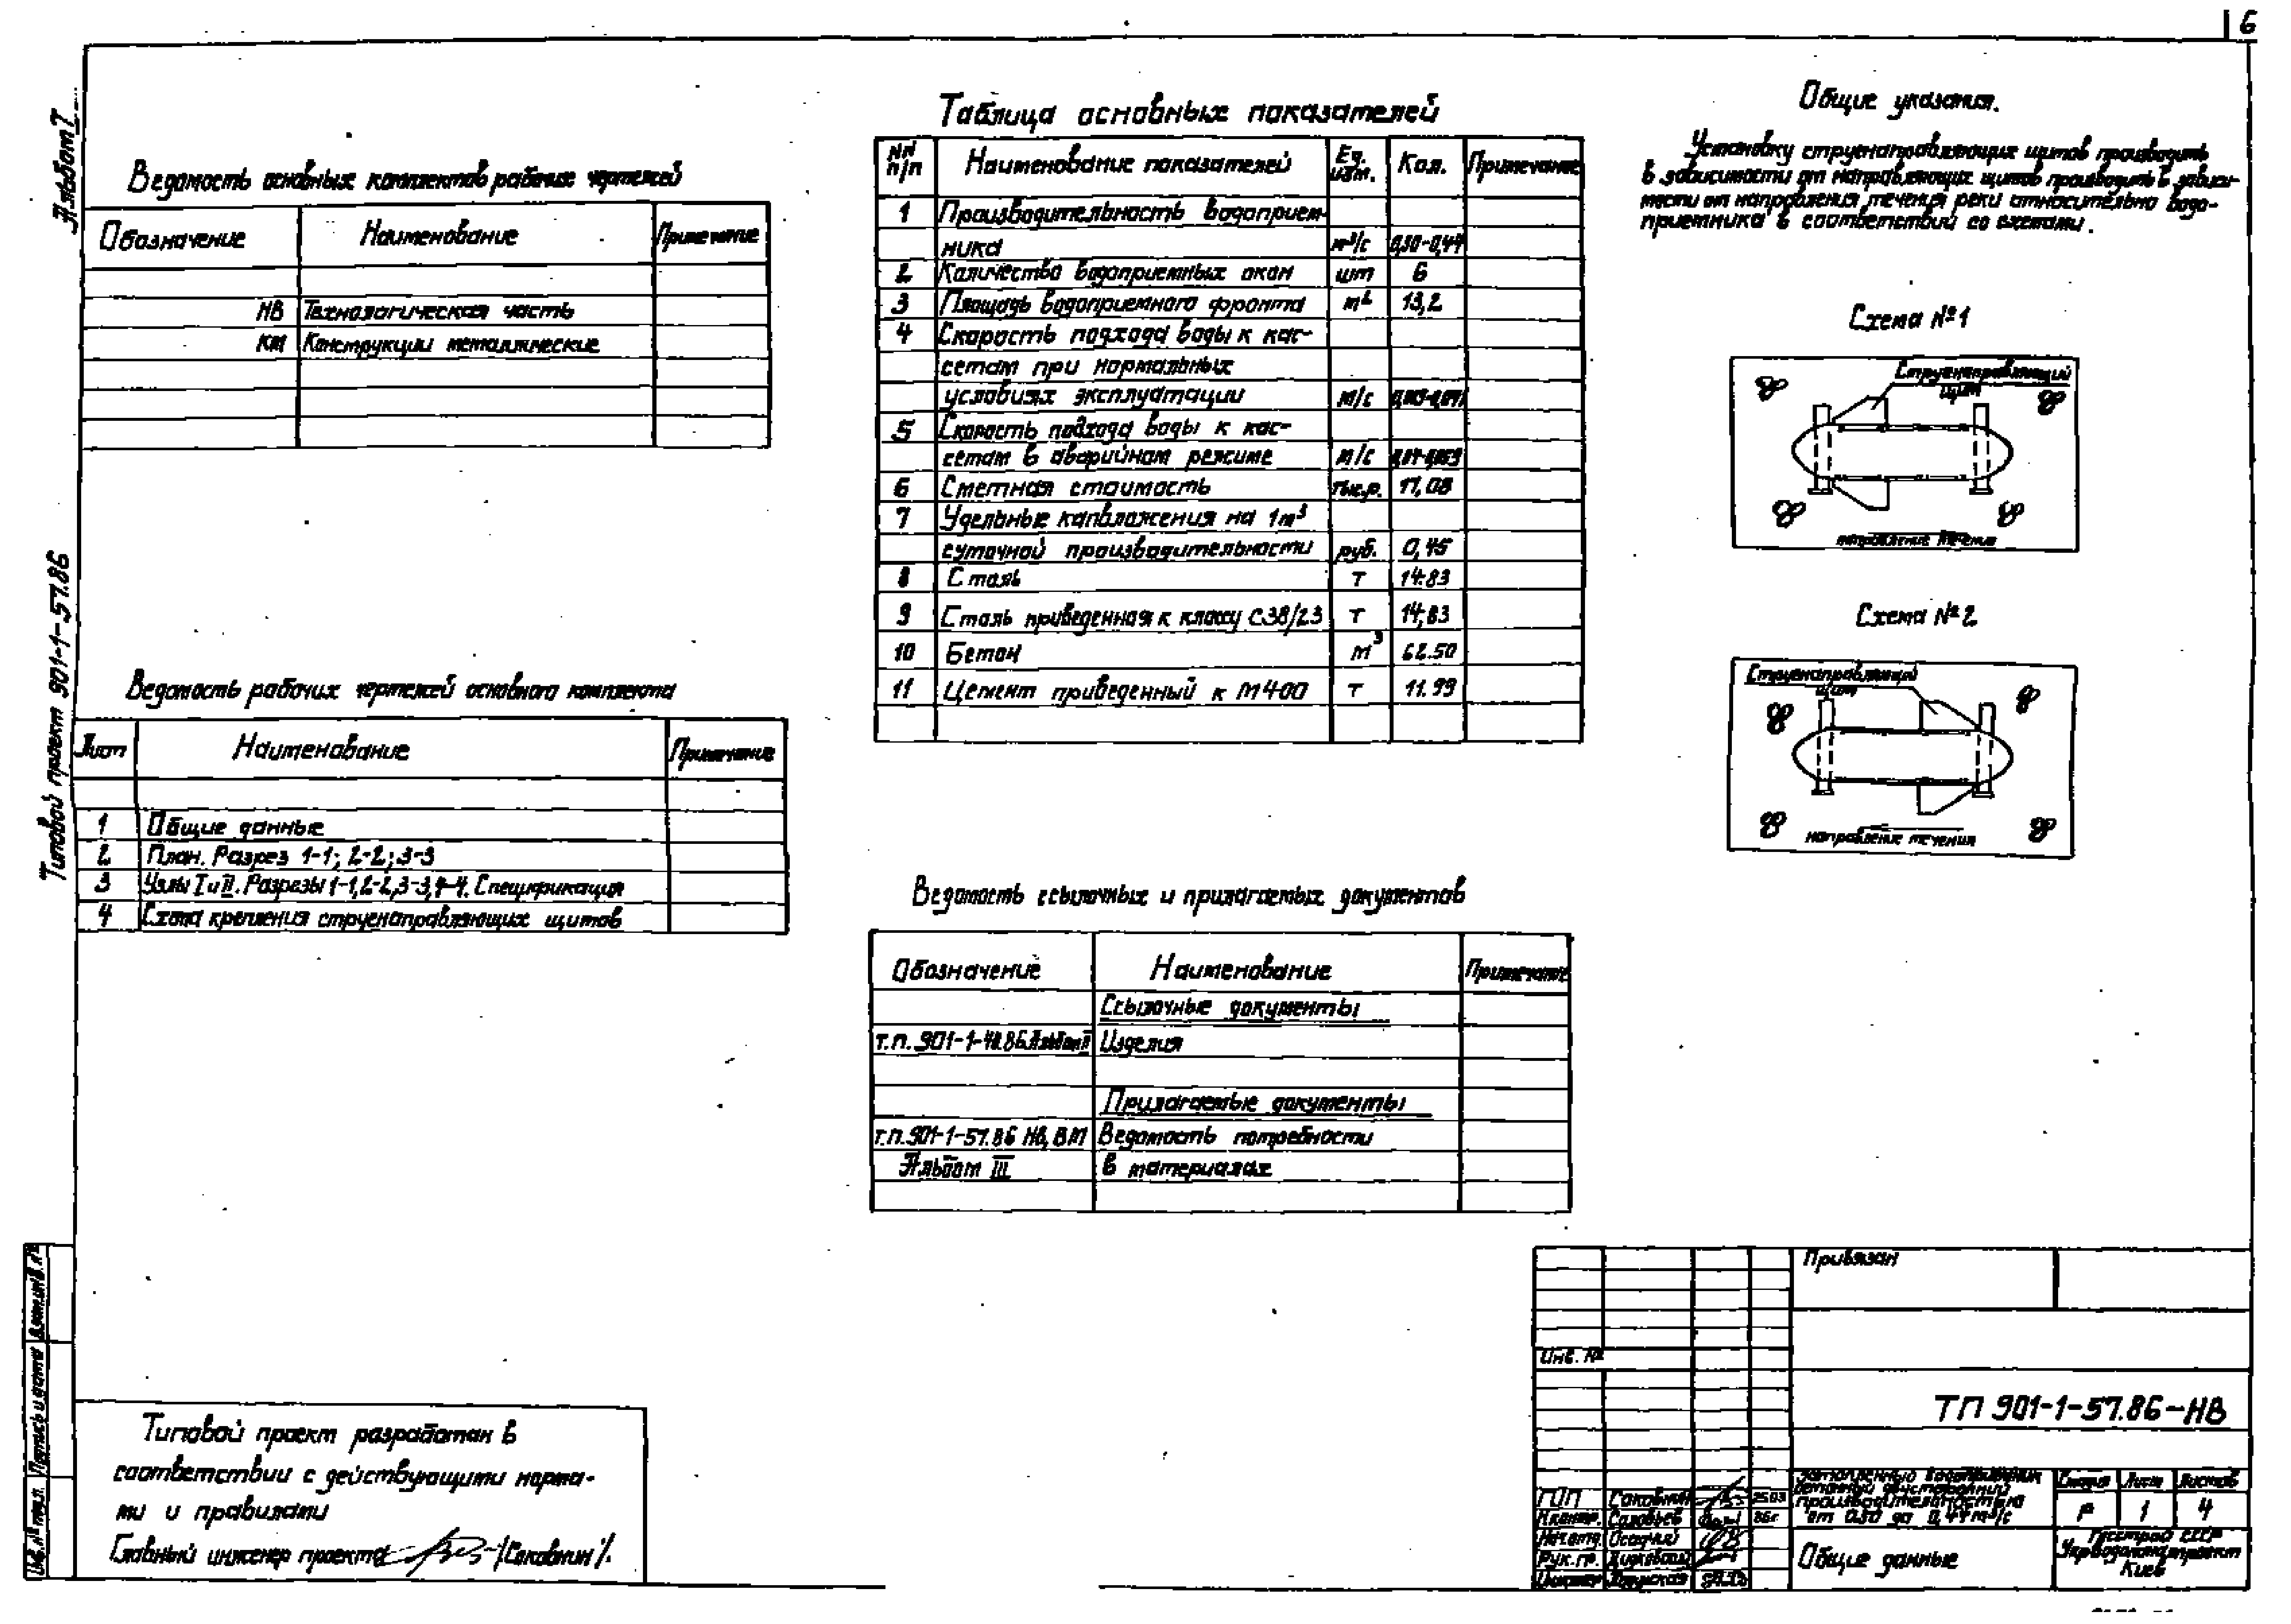 6
Альбом I
Типовой проект 901-1-57.86
Ведомость основных комплектов рабочих чертежей
Обозначение Наименование Примечание
НВ Технологическая часть
КМ Конструкции металлические
Ведомость рабочих чертежей основного комплекта
Лист Наименование Примечание
1 Общие данные
2 План. Разрез 1-1; 2-2; 3-3
3 Узлы I и II. Разрезы 1-1, 2-2, 3-3, 4-4. Спецификация
4 Схема крепления струенаправляющих щитов
Таблица основных показателей
NN п/п Наименование показателей Ед. изм. Кол. Примечание
1 Производительность водоприем-
ника м³/с 0,30-0,44
2 Количество водоприемных окон шт 6
3 Площадь водоприемного фронта м² 13,2
4 Скорость подхода воды к кас-
сетам при нормальных
условиях эксплуатации м/с
5 Скорость подхода воды к кас-
сетам в аварийном режиме м/с
6 Сметная стоимость тыс.р. 17,08
7 Удельные капвложения на 1м³
суточной производительности руб. 0,45
8 Сталь т 14.83
9 Сталь приведенная к классу С38/23 т 14,83
10 Бетон м³ 62.50
11 Цемент приведенный к М400 т 11.99
Ведомость ссылочных и прилагаемых документов
Обозначение Наименование Примечание
Ссылочные документы
Изделия
Прилагаемые документы
т.п. 901-1-57.86 НВ, ВМ Ведомость потребности
Альбом III в материалах
Общие указания.
Установку струенаправляющих щитов производить
в зависимости от направляющих щитов производить в зависи-
мости от направления течения реки относительно водо-
приемника в соответствии со схемами.
Схема №1
Струенаправляющий
щит
направление течения
Схема №2
Струенаправляющий
щит
направление течения
Типовой проект разработан в
соответствии с действующими норма-
ми и правилами
Главный инженер проекта /Соковнин/.
Взам.инв.№
Подпись и дата
Инв.№ подл.
Привязан
Инв. №
ТП 901-1-57.86-НВ
ГИП Соковнин
Н.контр. Соловьев
Нач.отд. Осадчий
Рук.гр.
Инженер
Затопленный водоприемник
бетонный двусторонний
производительностью
от 0.30 до 0,44 м³/с
Стадия Лист Листов
Р 1 4
Общие данные
Госстрой СССР
Укрводоканалпроект
Киев